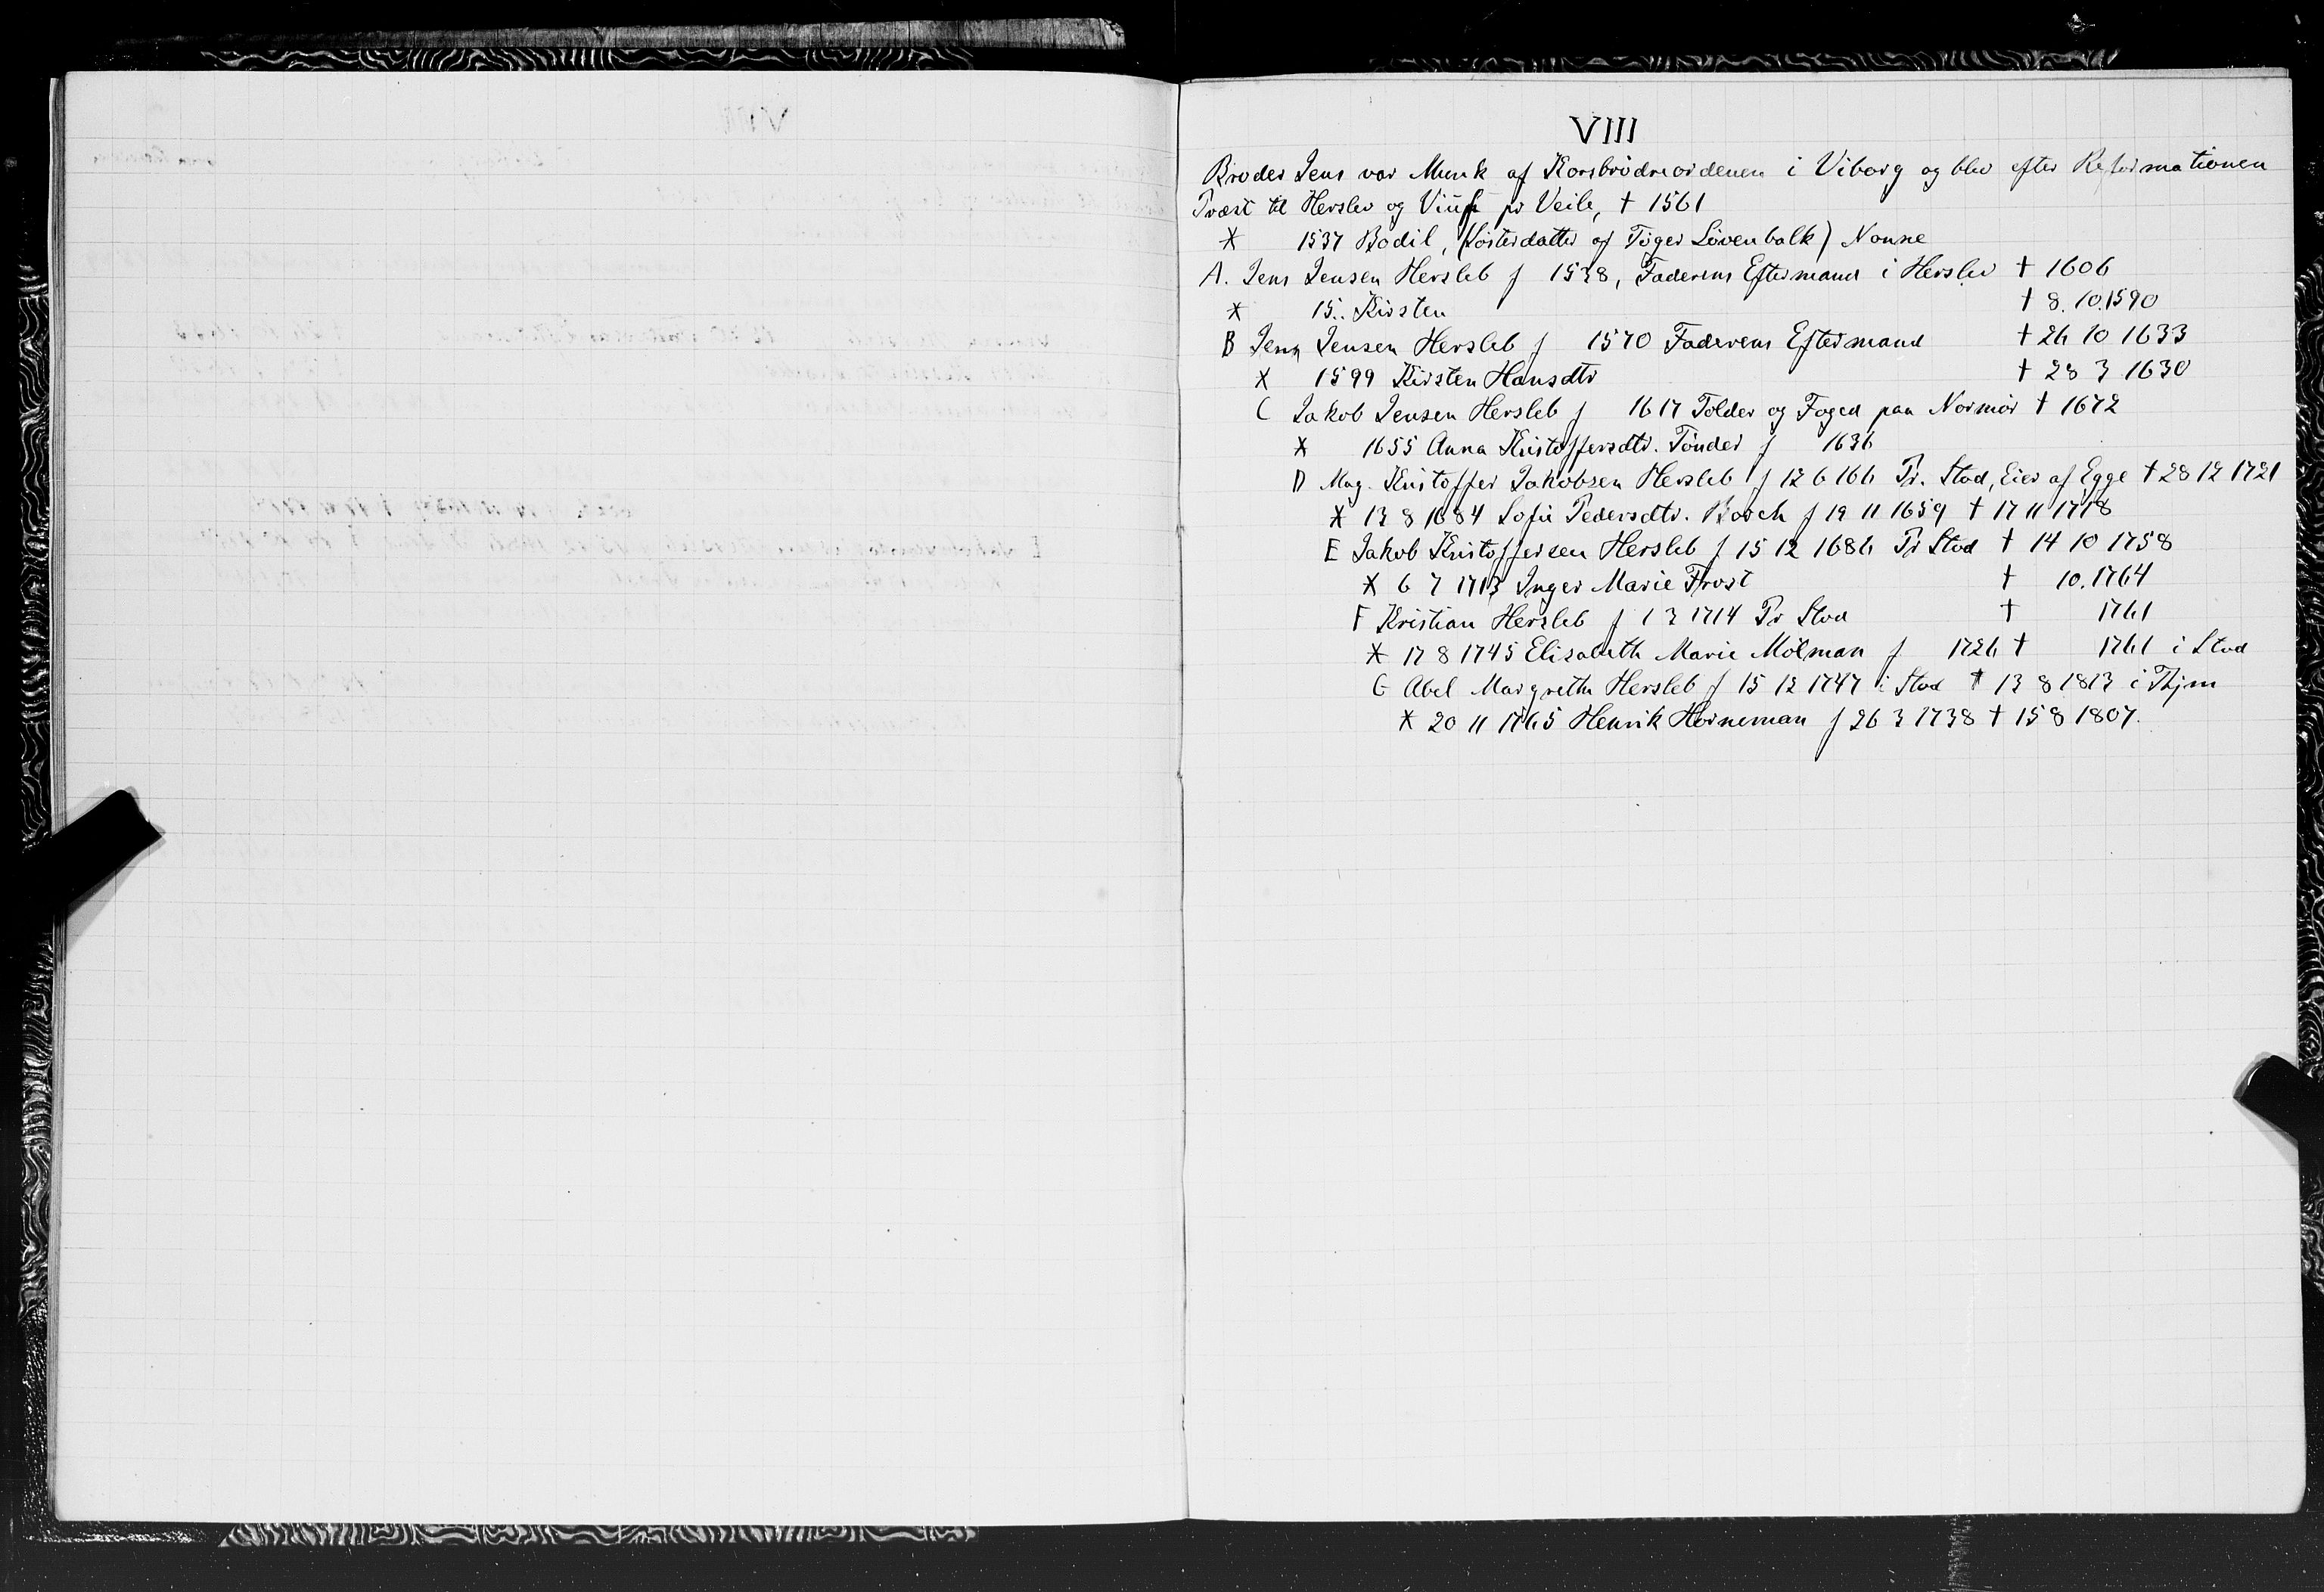 VIII
Broder Jens var Munk af Korsbrödreordenen i Viborg og blev efter Reformationen
Præst til Herslev og Viuf pr Veile, † 1561
X 1537 Bodil, (Sösterdatter af Töger Lövenbalk) Nonne
A. Jens Jensen Hersleb f 1538, Faderens Eftermand i Herslev † 1606
X 15.. Kirsten † 8. 10. 1590
B Jens Jensen Hersleb f 1570 Faderens Eftermand † 26 10 1633
X 1599 Kirsten Hansdtr † 28 3 1630
C Jakob Jensen Hersleb f 1617 Tolder og Foged paa Normör † 1672
X 1655 Anna Kristoffersdtr. Tönder f 1636
D Mag. Kristoffer Jakobsen Hersleb f 12 6 166 Pr. Stod, Eier af Egge † 28 12 1721
X 13 8 1684 Sofie Pedersdtr. Borch f 19 11 1659 † 17 11 1718
E Jakob Kristoffersen Hersleb f 15 12 1686 Pr Stod † 14 10 1758
X 6 7 1713 Inger Marie Frost † 10. 1764
F Kristian Hersleb f 1 3 1714 Pr Stod † 1761
X 17 8 1745 Elisabeth Marie Mölman f 1726 † 1761 i Stod
G Abel Margrethe Hersleb f 15 12 1747 i Stod † 13 8 1813 i Thjm
X 20 11 1765 Henrik Horneman f 26 3 1738 † 15 8 1807.